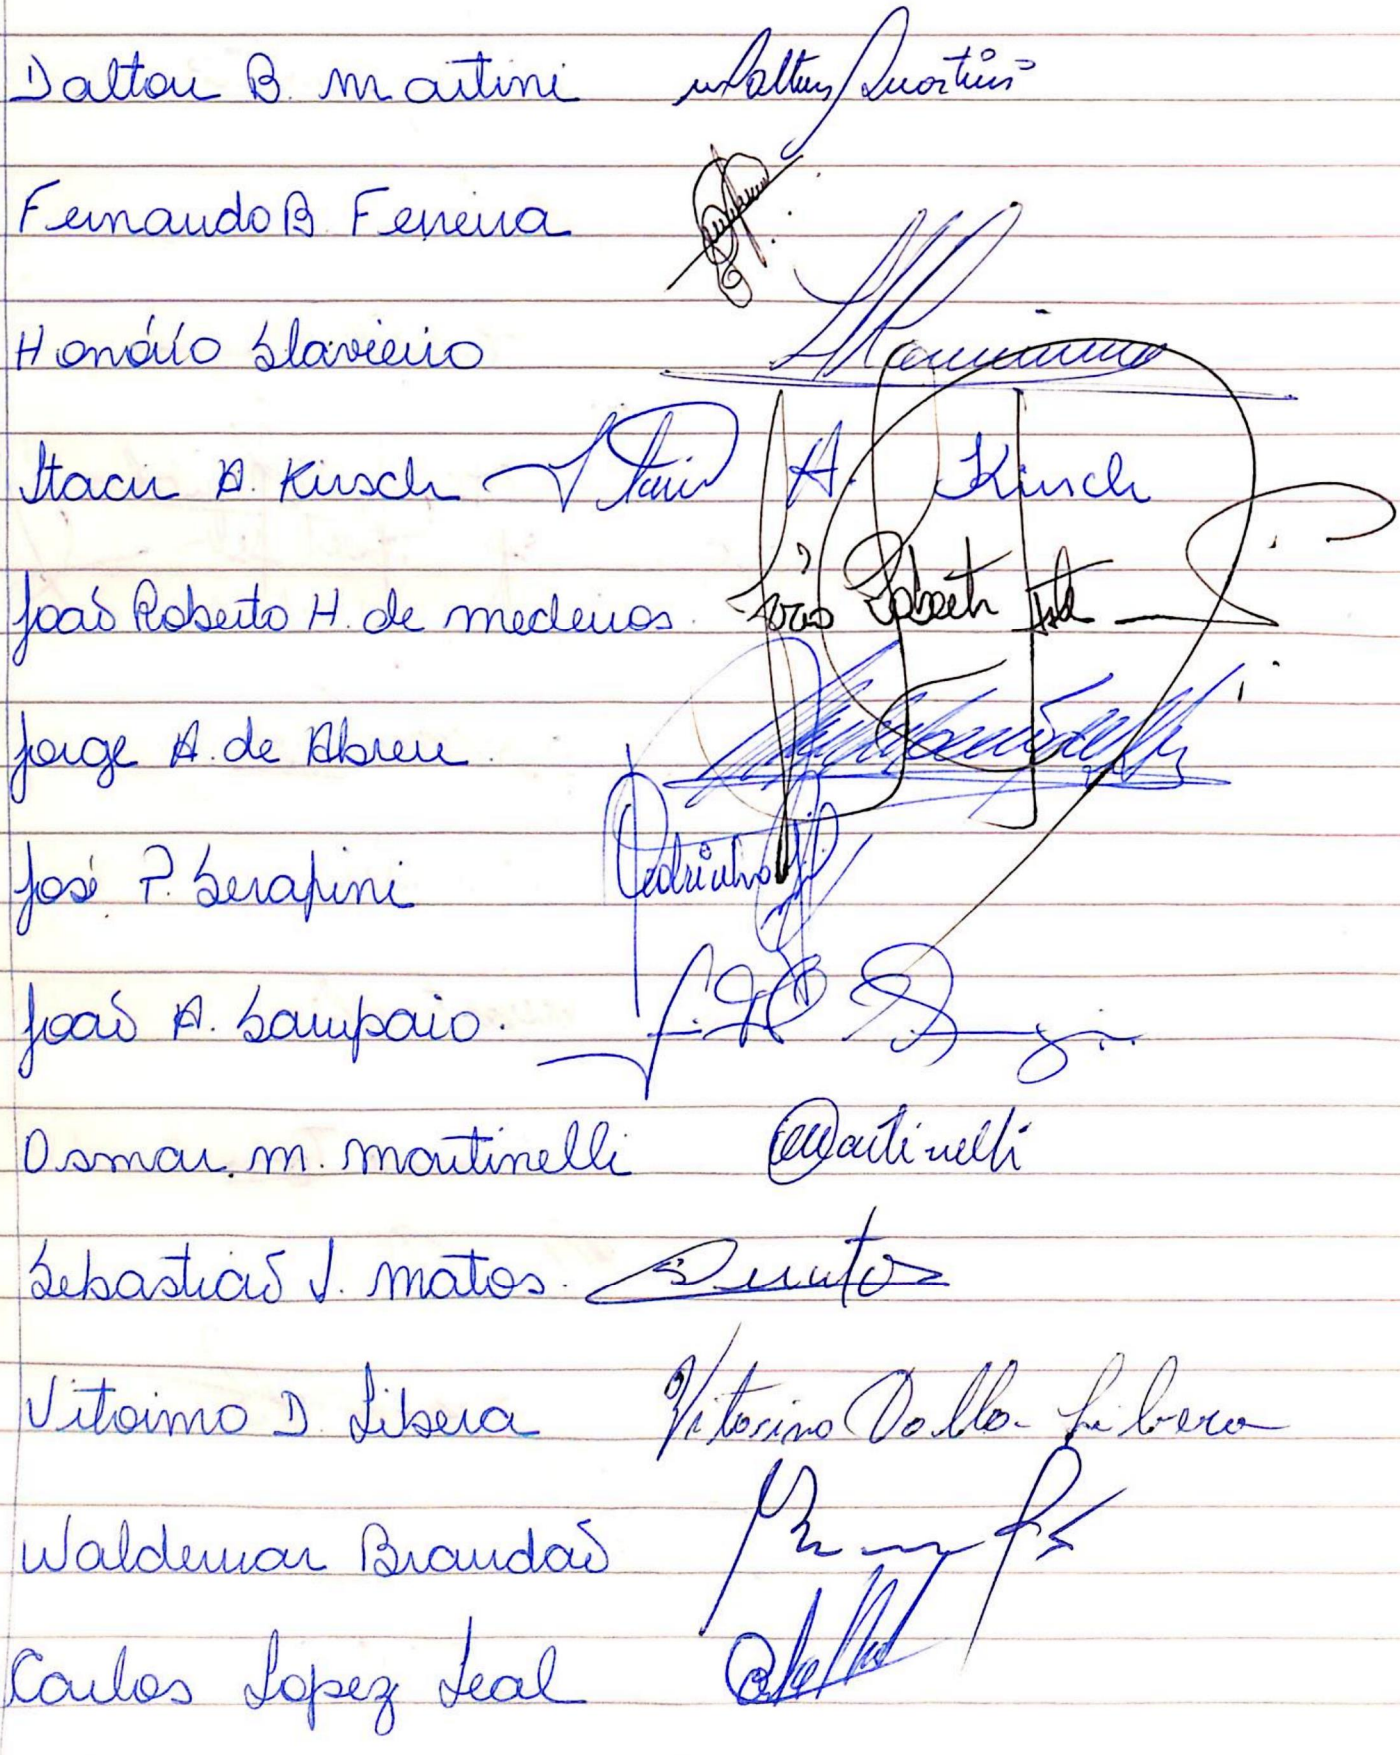 Dalton B. Martini Dalton Martini
Fernando B. Ferreira
Honório Slavieiro
Itacir A. Kirsch Itacir A. Kirsch
João Roberto H. de Medeiros. João Roberto
Jorge A. de Abreu.
José P. Serafini Pedrinho
João A. Sampaio.
Osmar. M. Martinelli Martinelli
Sebastião J. Matos.
Vitorino D. Libera Vitorino Dalla Libera
Waldemar Brandão
Carlos Lopez Leal